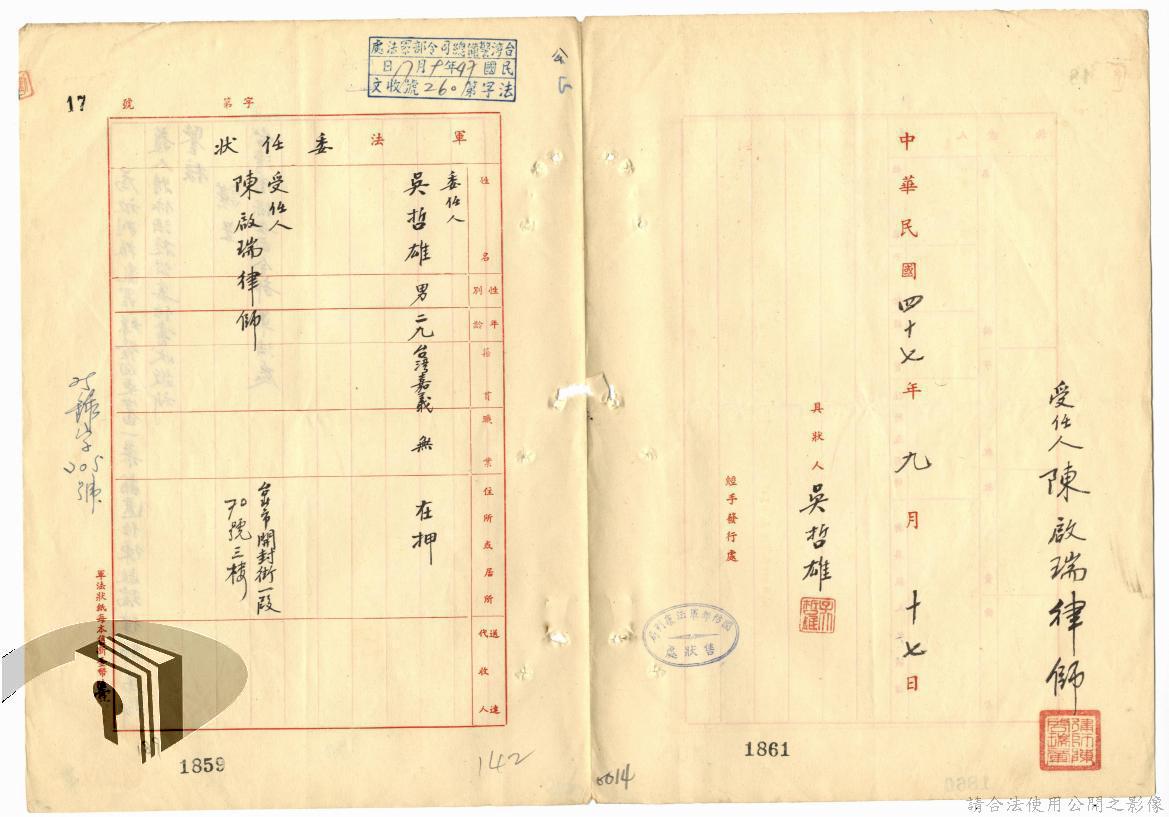 台灣警備總司令部軍法處
民國47年9月17日
法字第260號收文
字第 號
17
軍法委任狀
姓名
性別
年齡
籍貫
職業
住所或居所
送達代收人
委任人
吳哲雄
男
二九
台灣嘉義
無
在押
受任人
陳啟瑞律師
台北市開封街一段
70號三樓
軍法狀紙每本售新臺幣
1859
142
中華民國四十七年九月十七日
具狀人 吳哲雄
經手發行處
國防部軍法覆判局
售狀處
受任人 陳啟瑞律師
律師陳啟瑞章
1861
0014
請合法使用公開之影像